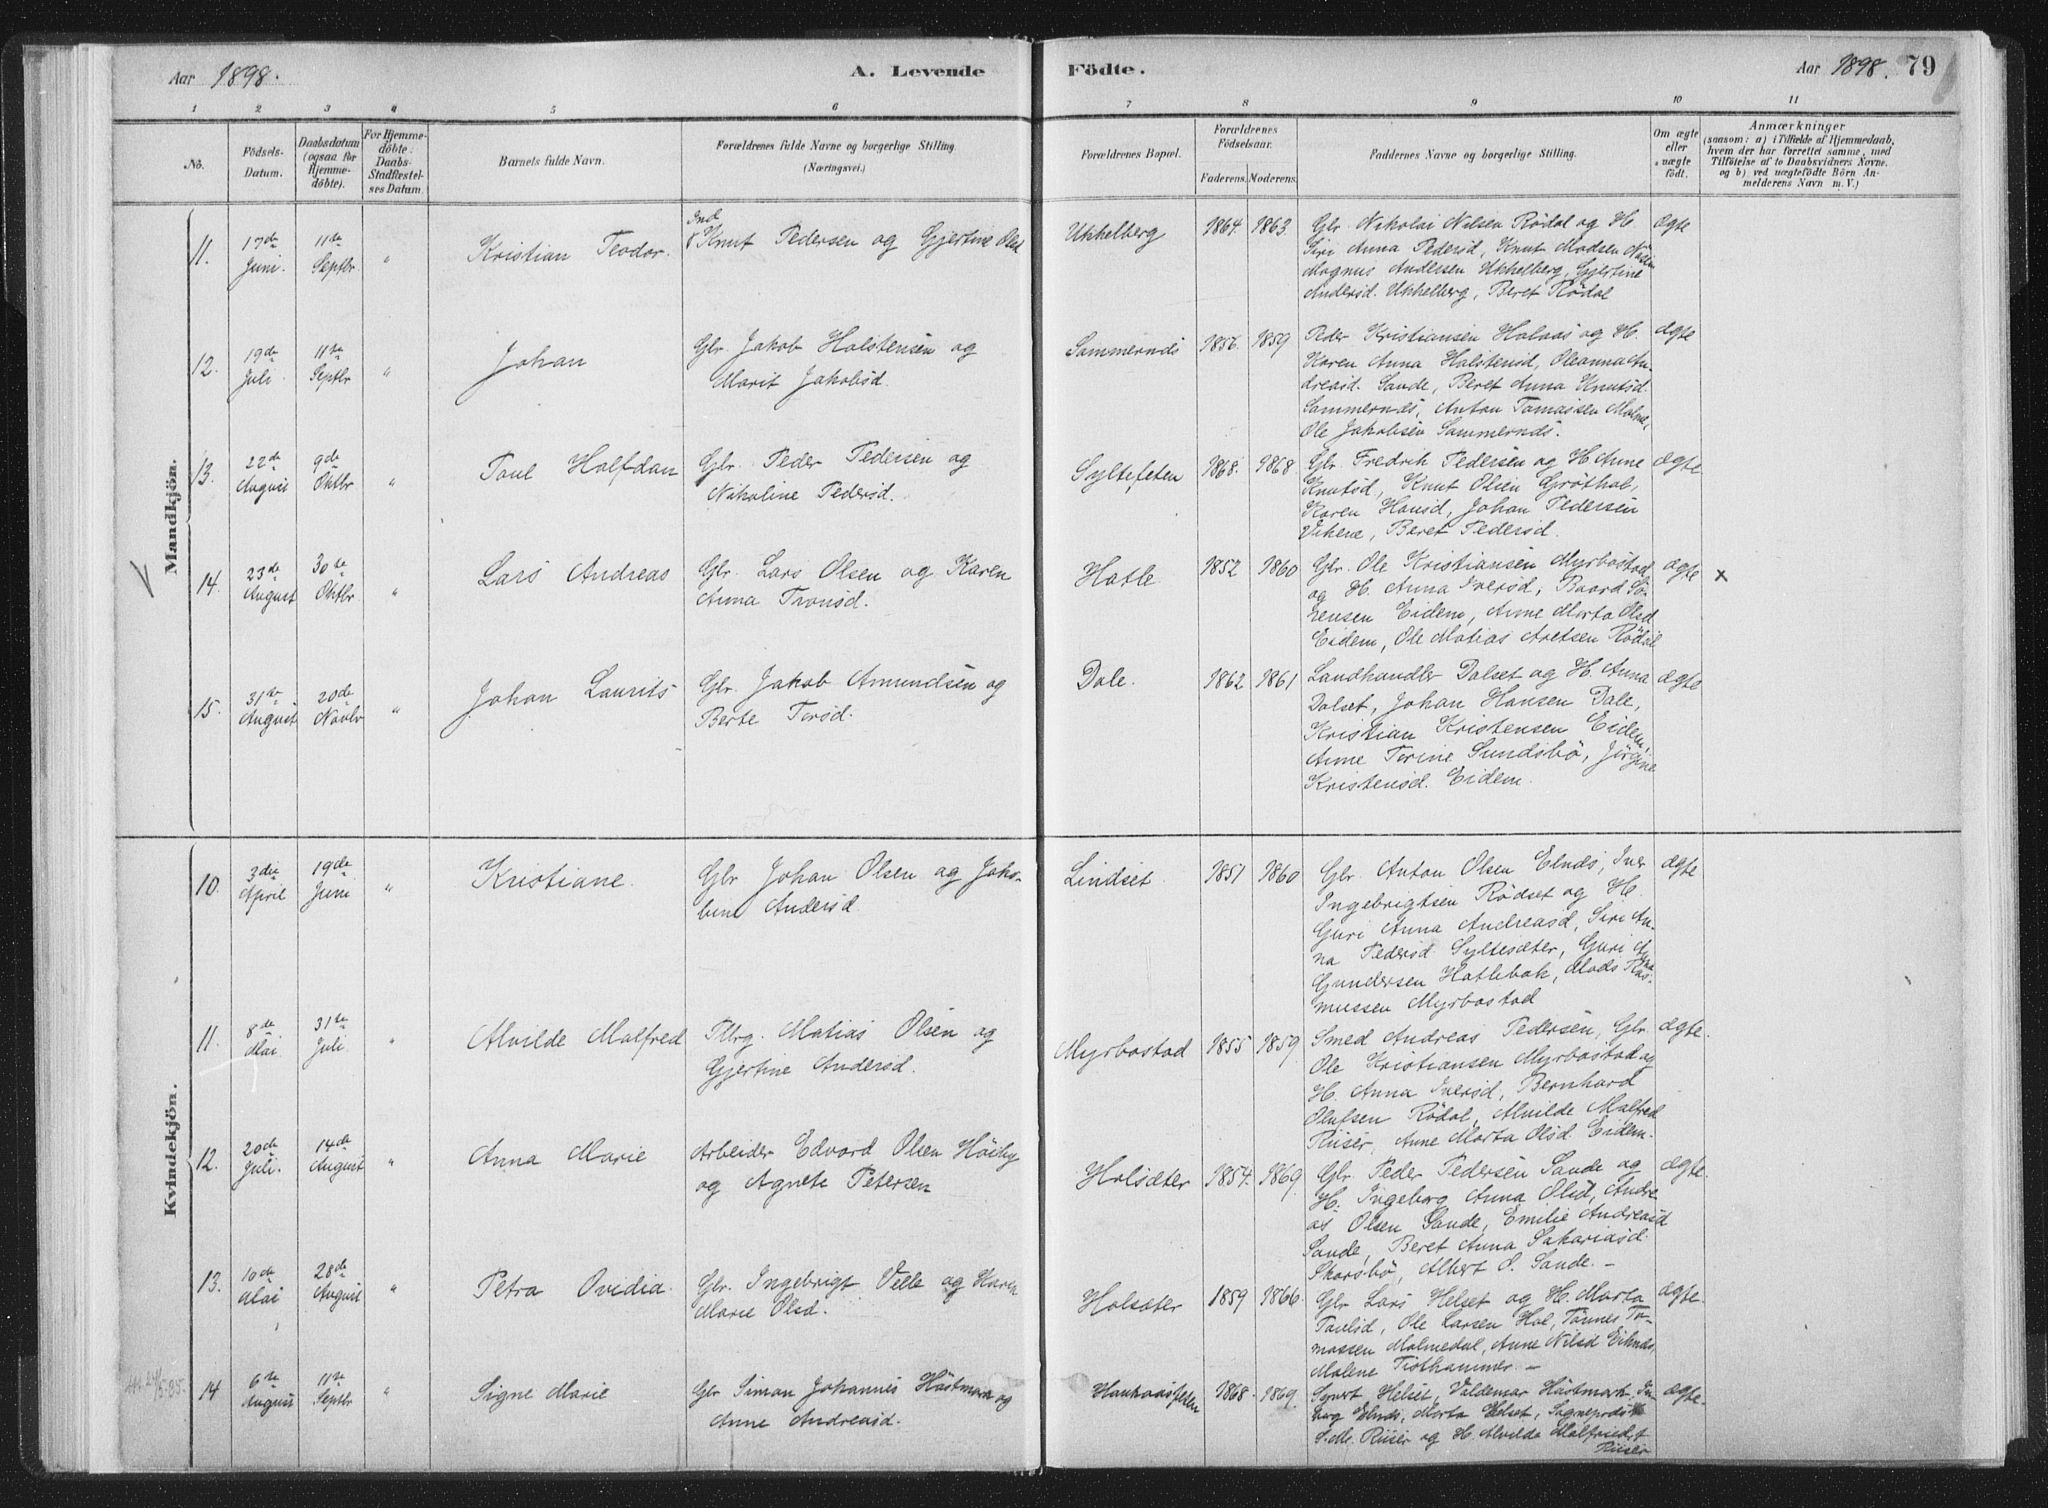 Aar 1898.
A. Levende
Födte.
Aar 1898. 79
1 2 3 4 5 6 7 8 9 10 11
No.
Födsels-Datum.
Daabsdatum (ogsaa for Hjemmedöbte).
For Hjemmedöbte: Daabs-Stadfæstelses Datum.
Barnets fulde Navn.
Forældrenes fulde Navne og borgerlige Stilling.
(Næringsvei.)
Forældrenes Bopæl.
Forældrenes Födselsaar.
Faderens. Moderens.
Faddernes Navne og borgerlige Stilling.
Om ægte eller uægte födt.
Anmærkninger
(saasom: a) i Tilfælde af Hjemmedaab, hvem der har forrettet samme, med Tilföielse af to Daabsvidners Navne, og b) ved uægtefödte Börn Anmelderens Navn m. V.)
Mandkjön.
11. 17de Juni. 11te Septbr " Kristian Teodor.
Ind Knut Pedersen og Gjertine Olsd
Ukkelberg 1864. 1863.
Glr. Nikolai Nilsen Rödal og H.
Siri Anna Pedersd, Knut Madsen
Magnus Andersen Ukkelberg, Gjertine
Andersd. Ukkelberg, Beret Rödal
Ægte
12. 19de Juli. 11te Septbr " Johan
Glr Jakob Halstensen og
Marit Jakobsd.
Sammernæs 1856. 1859
Peder Kristiansen Halaas og H.
Karen Anna Halstensd, Oleanna An-
dreasd. Sande, Beret Anna Knutsd.
Sammernæs, Anton Tomassen Malme,
Ole Jakobsen Sammernæs.
ægte
13. 22de August 9de Oktbr " Paul Halfdan
Glr. Peder Pedersen og
Nikoline Pedersd.
Syltefeten 1868. 1868
Glr. Fredrik Pedersen og H Anne
Knutsd, Knut Olsen Gröthol,
Karen Hansd, Johan Pedersen
Vikene, Beret Pedersd.
ægte
14. 23de August 30te Oktbr " Lars Andreas
Glr. Lars Olsen og Karen
Anna Tronsd.
Hatle 1852 1860
Glr. Ole Kristiansen Myrbostad
og H. Anna Iversd, Baard Sö-
rensen Eidem, Anne Marta Olsd
Eidem, Ole Matias Aretsen Rödal
ægte x
15. 31te August 20de Novbr " Johan Laurits
Glr. Jakob Amundsen og
Berte Tersd.
Dale. 1862 1861
Landhandler Dalset og H. Anna
Dalset, Johan Hansen Dale,
Kristian Kristensen Eidem,
Anne Terine Sundsbö, Jörgine
Kristensd. Eidem.
ægte
Kvindekjön.
10. 3die April 19de Juni " Kristiane.
Glr Johan Olsen og Jako-
bine Andersd
Lindset. 1851 1860
Glr. Anton Olsen Elnæs, Iver
Ingebrigtsen Rödset og H.
Guri Anna Andreasd, Siri An-
na Pedersd Syltesæter, Guri Anna
Gundersen Hatlebak, Mads Ras-
mussen Myrbostad
ægte
11. 8de Mai 31te Juli. " Alvilde Malfred
Mtrg. Matias Olsen og
Gjertine Andersd.
Myrbostad 1855 1859.
Smed Andreas Pedersen, Glr.
Ole Kristiansen Myrbostad og
H. Anna Iversd, Bernhard
Olufsen Rödal, Alvilde Malfred
Riiser, Anne Marta Olsd. Eidem.
ægte.
12. 20de Juli. 14de August " Anna Marie
Arbeider Edvard Olsen Höiby
og Agnete Petersen
Holsæter 1854. 1869.
Glr. Peder Pedersen Sande og
H. Ingeborg Anna Olsd, Andre-
as Olsen Sande, Emilie Andreasd
Sande, Beret Anna Sakariasd.
Skarsbö, Albert S. Sande. –
ægte.
13. 10de Mai 28de August " Petra Ovidia.
Glr. Ingebrigt Velle og Karen
Marie Olsd.
Holsæter 1859 1866.
Glr Lars Helset og H. Marta
Paulsd, Ole Larsen Hol, Tönnes To-
massen Malmedal, Anne Nilsd Eiknæs,
Malene Tisthammer. –
ægte.
14 6te August 11te Septbr " Signe Marie
Glr Simon Johannes Hästmark og
Anne Andreasd.
Haukaasfeten 1868. 1869.
Syvert Helset, Valdemar Hästmark, In-
borg Elnæs, Marta Helset, Sogneprest
S.M. Riiser og H. Alvilde Malfried
Riiser
ægte.